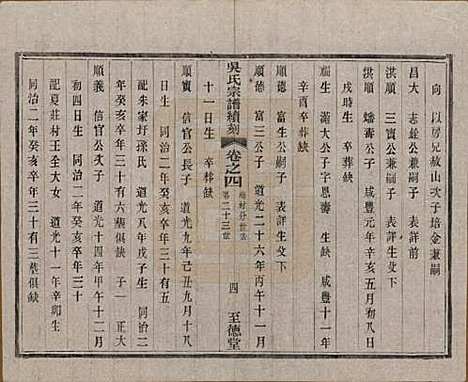 向 以房兄赦山次子培金兼嗣
昌大 志銓公兼嗣子 表詳生父下
洪順 三寶公兼嗣子 表詳生父下
蟠壽公子 咸豐元年辛亥五月初八日
戌時生 卒葬缺
福生 滿大公子字思壽 生缺 咸豐十一年
辛酉卒葬缺
順德 富生公嗣子 表詳生父下
順德 富三公子 道光二十六年丙午十一月
十一日生 卒葬缺
吳氏宗譜續刻 卷之四 第二十三世 四 至德堂
順寶 信官公長子 道光九年己丑九月十八
日生 同治二年癸亥卒年三十有五
配朱家圩孫氏 道光八年戊子生 同治二
年癸亥卒年三十有六墓俱缺 子一 正大
順義 信官公次子 道光十四年甲午十二月
初四日生 同治二年癸亥卒年三十
配夏莊村王全大女 道光十一年辛卯生
同治二年癸亥卒年三十有三墓俱缺